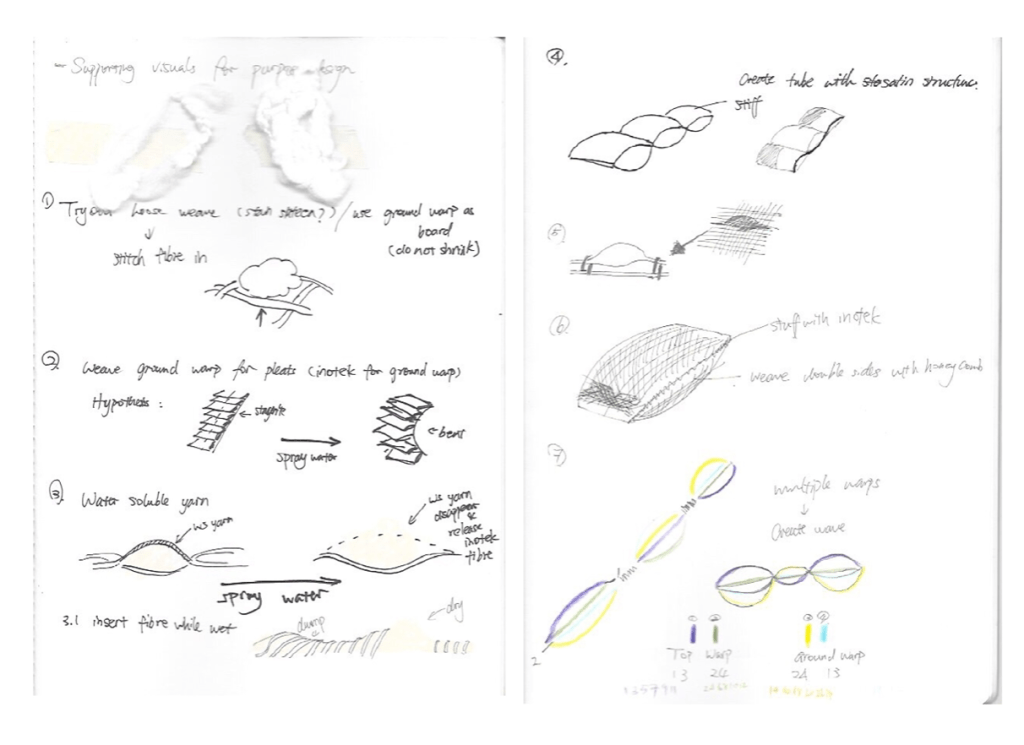 - Supporting visuals for purpose design
① Try house weave (satin sateen?) / use ground warp as
board
(do not shrink)
stitch fibre in
② Weave ground warp for pleats (inotek for ground warp)
Hypothesis :
straight
bent
spray water
③ Water soluble yarn
ws yarn
ws yarn
disappear &
release
inotek
fibre
spray water
3.1 insert fibre while wet
damp
dry
④.
Create tube with structure.
stiff
⑤
⑥
stuff with inotek
weave double sides with honeycomb
⑦
multiple warps
Create wave
① ②
① ②
Top Warp
Ground warp
13 24
24 13
2